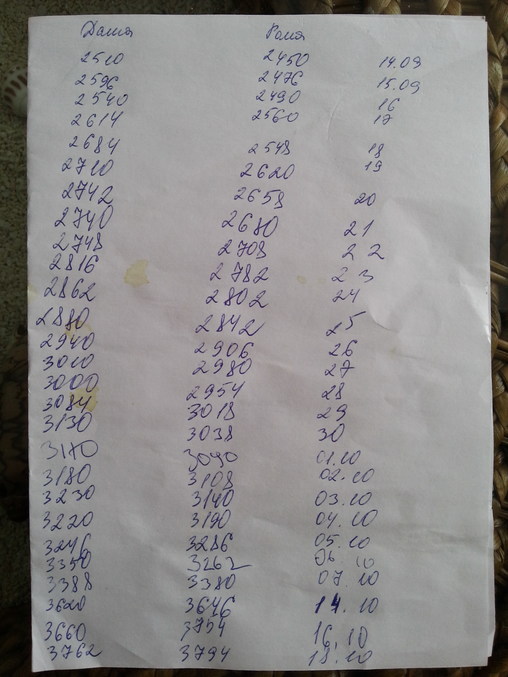 Даша Рома
2510 2450 14.09
2596 2476 15.09
2540 2490 16
2614 2560 17
2684 2548 18
2710 2620 19
2742 2658 20
2740 2680 21
2748 2708 22
2816 2782 23
2862 2802 24
2880 2842 25
2940 2906 26
3010 2980 27
3000 2954 28
3084 3018 29
3130 3038 30
3110 3090 01.10
3180 3108 02.10
3230 3140 03.10
3220 3190 04.10
3246 3286 05.10
3350 3262 06 10
3388 3380 07.10
3620 3646 14.10
3660 3754 16.10
3762 3794 18.10